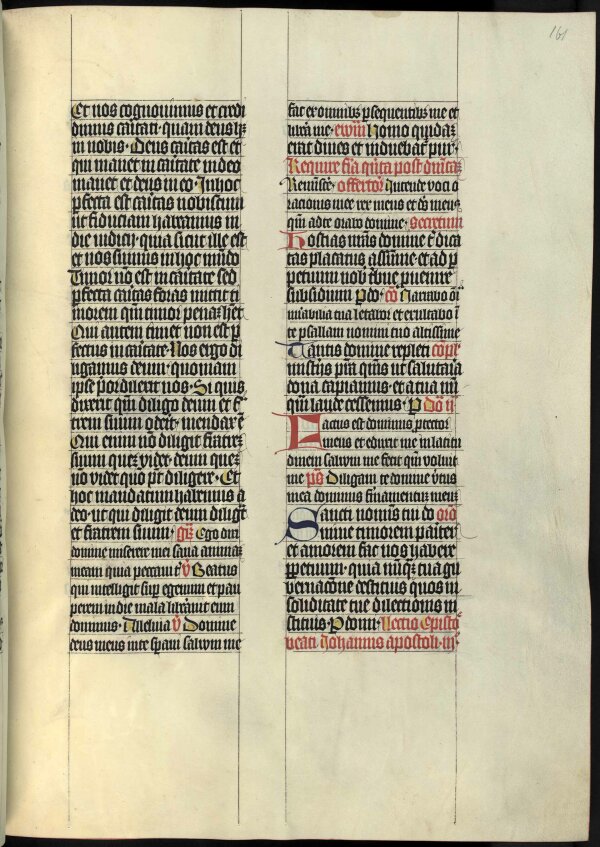 161
Et nos cognovimus et credi
dimus caritati · quam deus hꝫ
in nobis · Deus caritas est et
qui manet in caritate in deo
manet et deus in eo · In hoc
ꝑfecta est caritas nobiscum
ut fiduciam habeamus in
die iudicij · quia sicut ille est
et nos sumus in hoc mūdo
Timor nō est in caritate sed
ꝑfecta caritas foras mittit ti
morem qm̄ timor penā hēt
Qui autem timet non est ꝑ
fectus in caritate · Nos ergo di
ligamus deum · quoniam
ipse prior dilexit nos · Si quis
dixerit qm̄ diligo deum et fr̄
trem suum oderit · mendax ē
Qui enim nō diligit fratrē
suum quem videt · deum quem
nō videt quō pōt diligere · Et
hoc mandatum habemus a
deo · ut qui diligit deum diligat
et fratrem suum · Ego dixi
domine miserere mei sana animā
meam quia peccavi t̄ · v̄ Beatus
qui intelligit sup̄ egenum et pau
perem in die mala liberavit eum
dominus · Alleluia v̄ Domine
deus meus in te spavi salvum me
fac ex omnibꝫ ꝑsequentibꝫ me et
libera me · ewm̄ Homo quidā
erat dives et induebat̄ pur
Require fīa quīta post
offertor̄ Intende voci o
rationis mee rex meus et deus meus
qm̄ ad te orabo domine · secretum
Hostias nr̄as domine t̄ dica
tas placatus assume · et ad ꝑ
petuum nob̄ tbue ꝑvenire
subsidium P do · cō Narrabo oīa
mirabilia tua letabor et exultabo ī
te psallam nomini tuo altissime
Tantis domine repleti copl̄
munerib
dona capiamus · et a tua nūquā
laude cessemus · P Dō ii
Factus est dominus ꝓtector
meus et eduxit me in latitu
dinem salvum me fecit qm̄ voluit
me p̄s Diligam te domine v̄tus
mea dominus firmamentum meū
Sancti nominis tui do or̄o
mine timorem pariter
et amorem fac nos habere
ꝑpetuum · quia nūqꝫ tua gu
bernacōne destituis quos in
soliditate tue dilectionis in
stituis · P domi · Lectio Epistol̄
beati Johannis apostoli · in ·